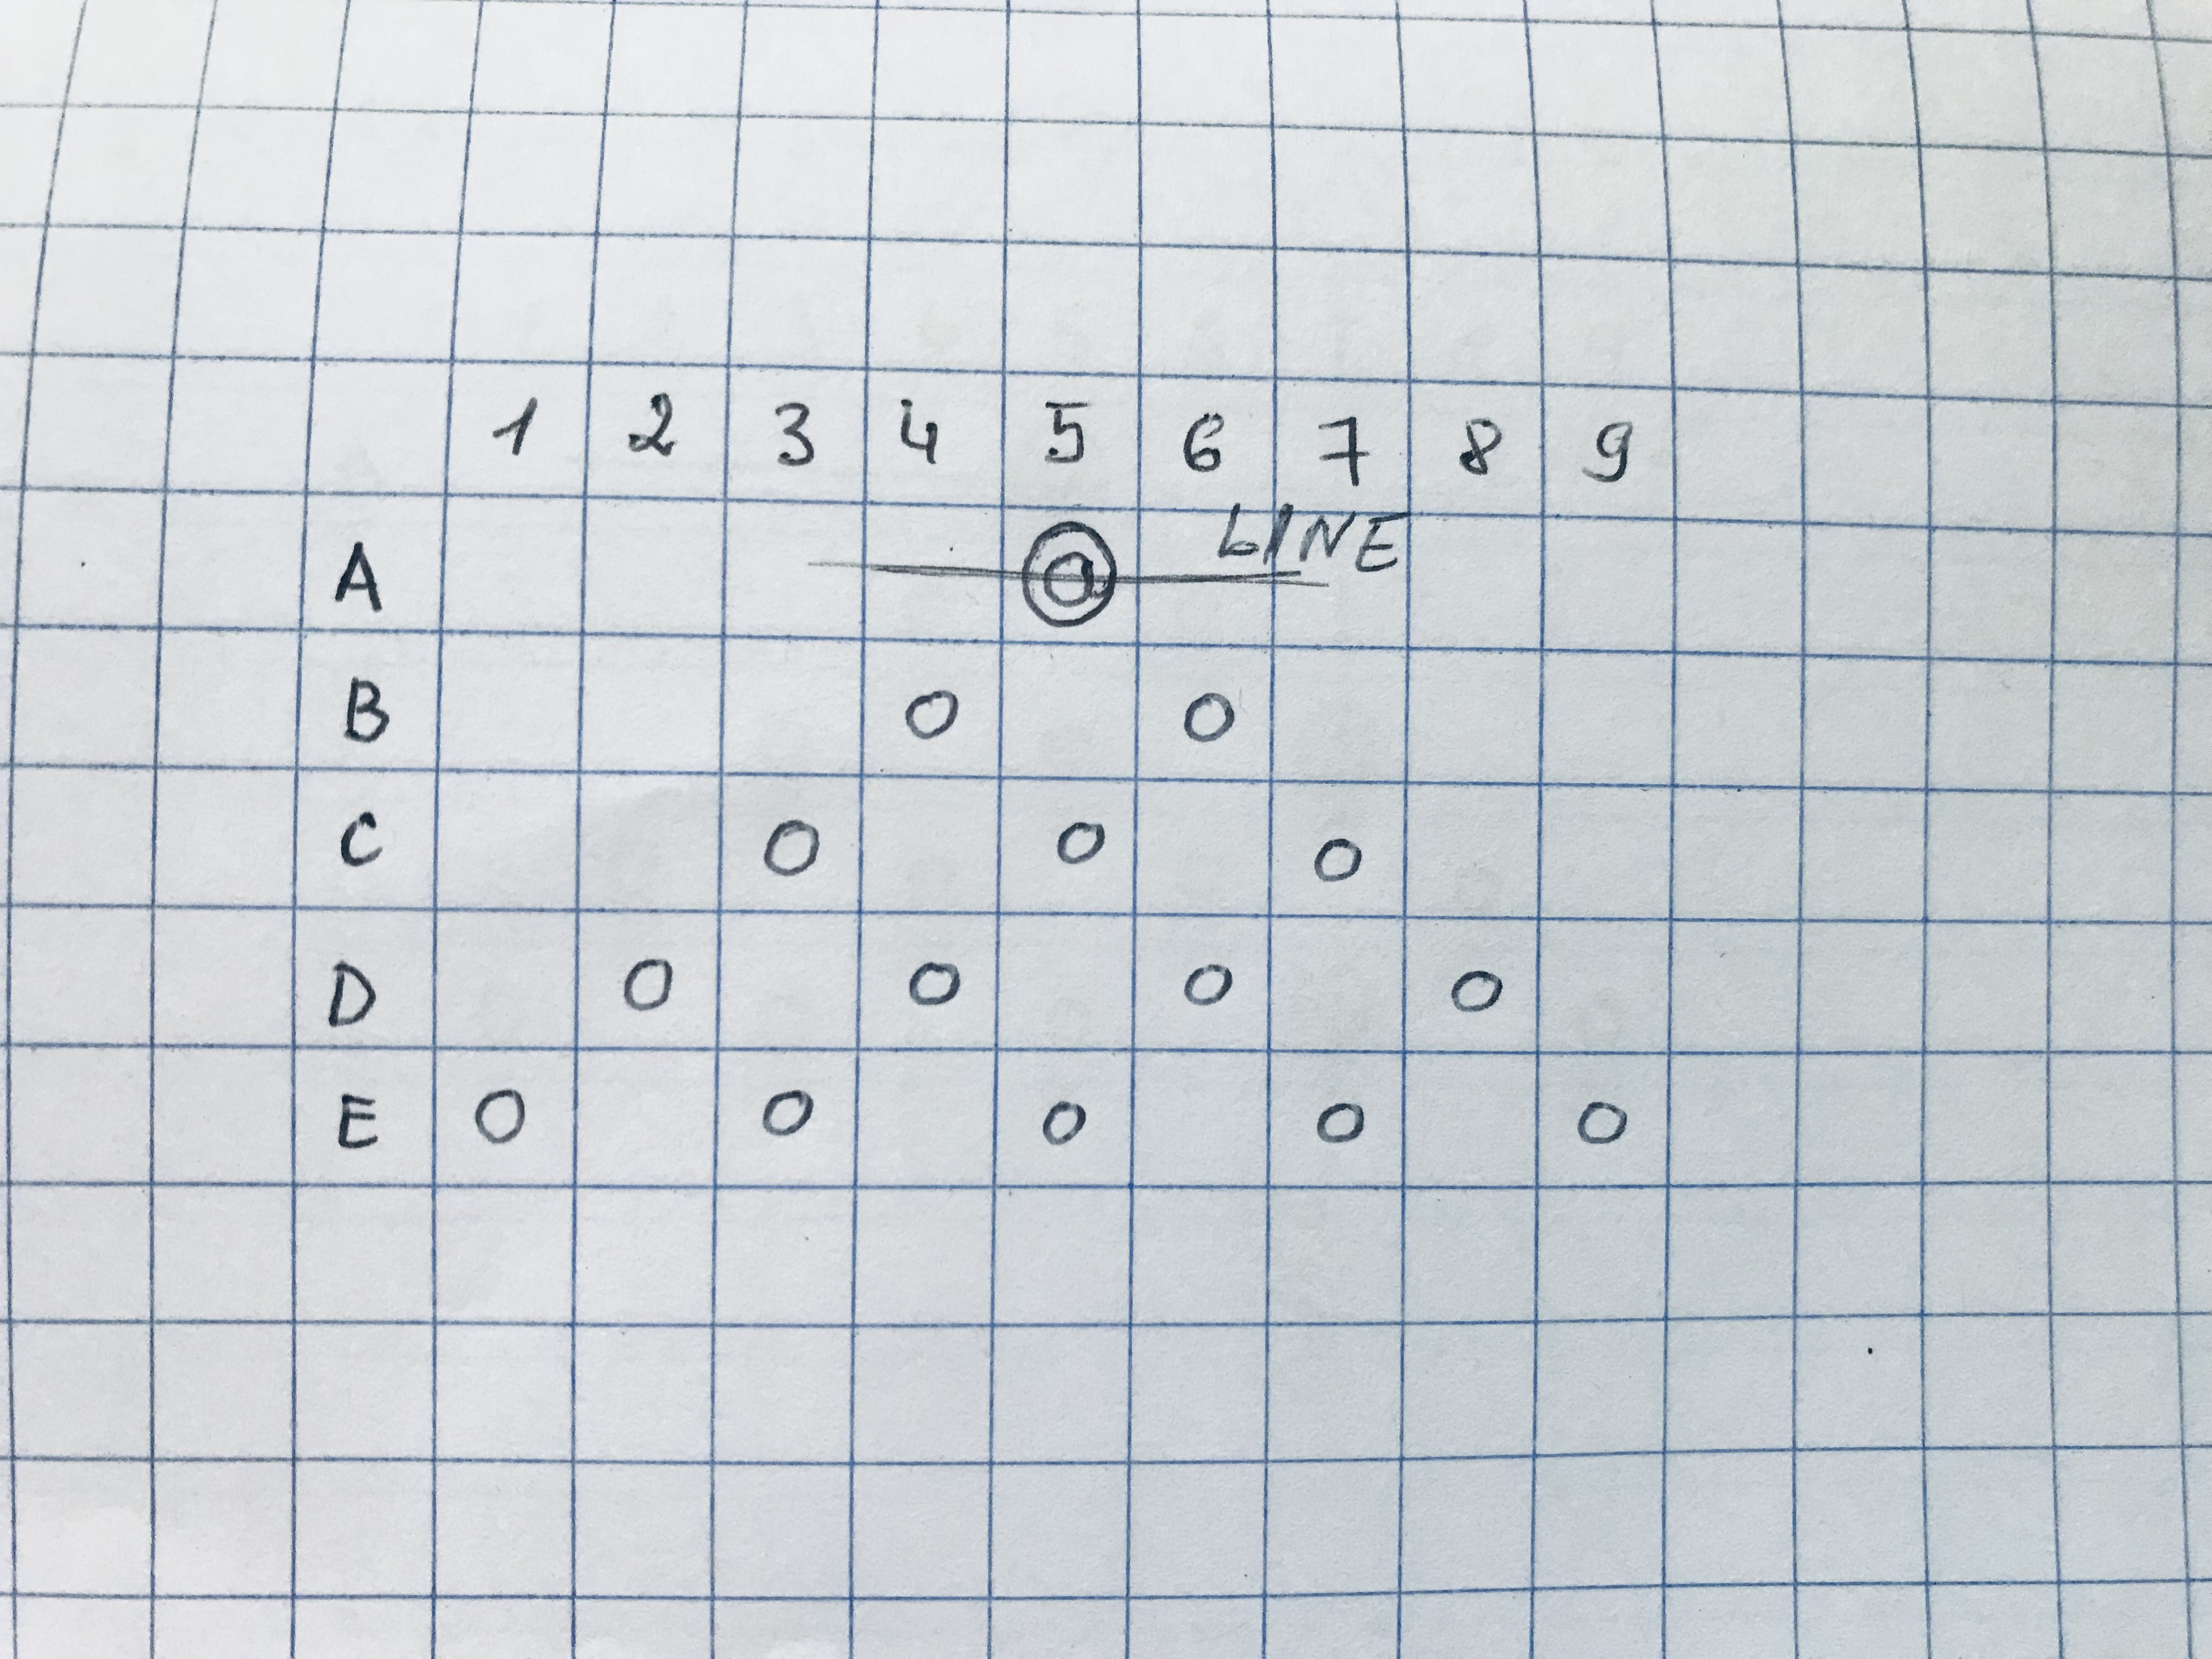 1 2 3 4 5 6 7 8 9
LINE
A O
B O O
C O O O
D O O O O
E O O O O O